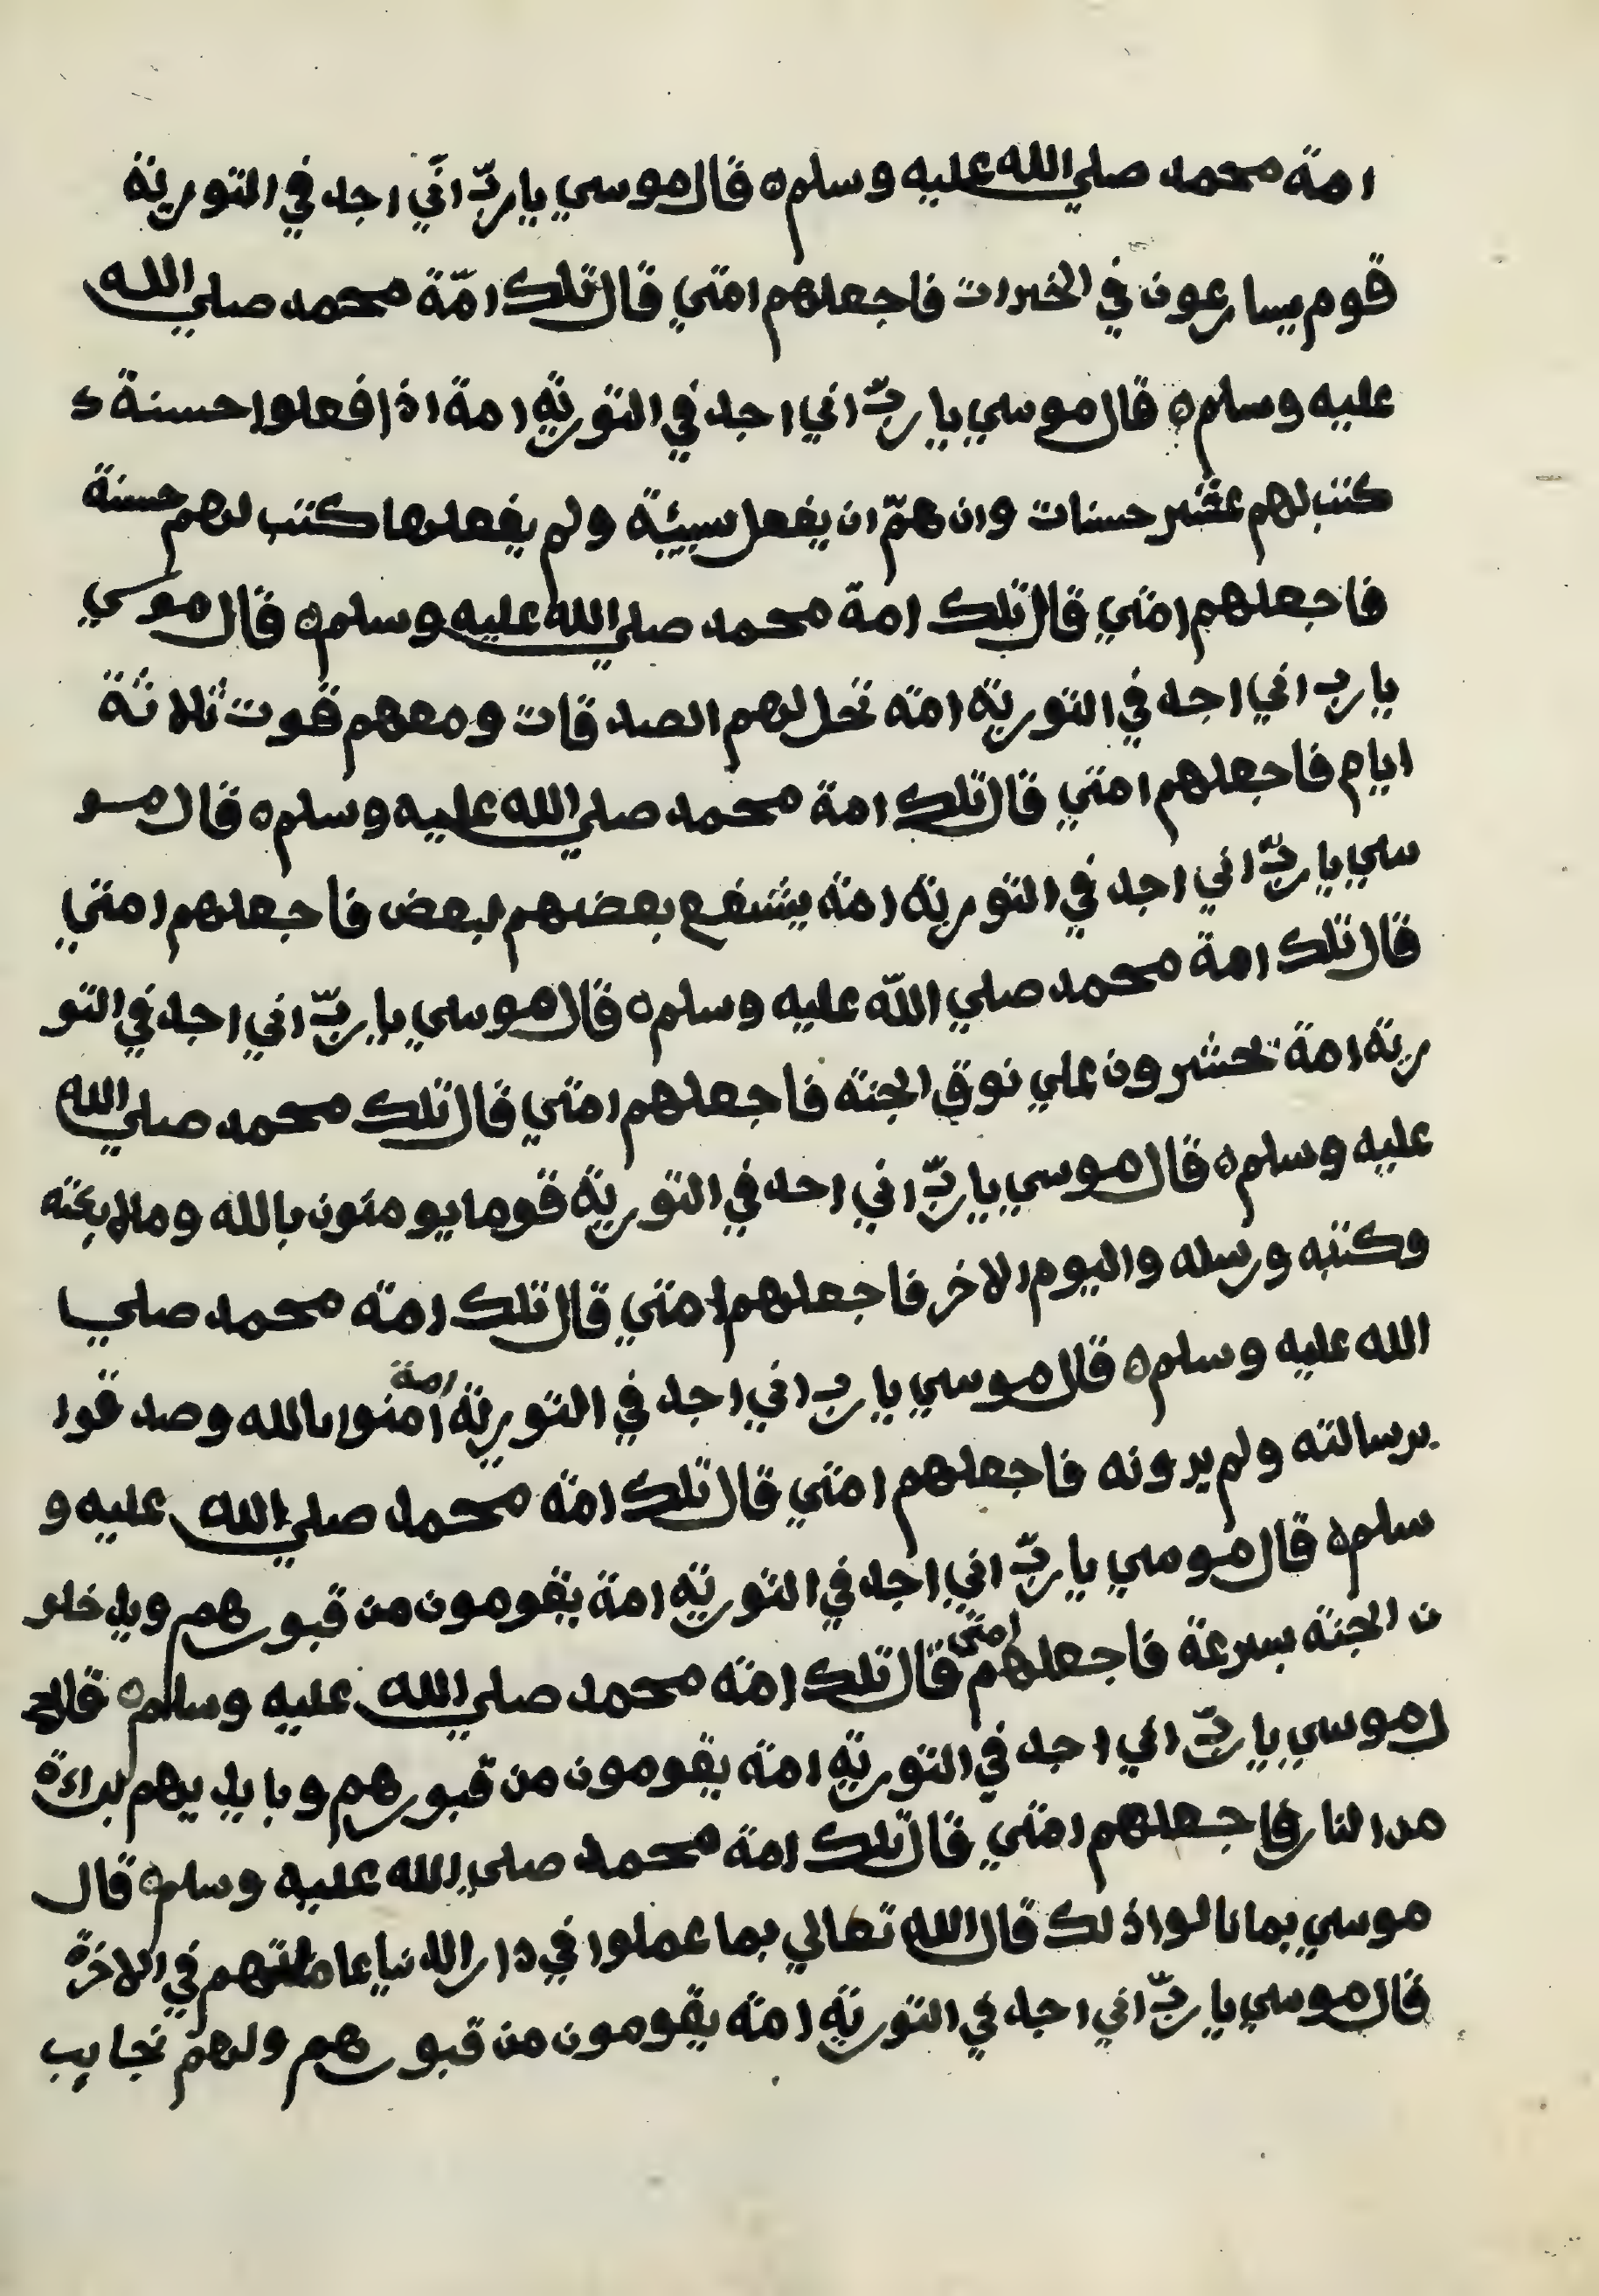 امة محمد صلي الله عليه وسلم ه قال موسي يا ربّ انّي اجد في التورية
قوم يسارعون في الخيرات فاجعلهم امتي قال تلك امّة محمد صلي الله
عليه وسلم ه قال موسي يا ربّ اني اجد في التورية امة اذا فعلوا حسنة ك
كتب لهم عشر حسنات وان همّ ان يفعل سيئة ولم يفعلها كتب لهم حسنة
فاجعلهم امتي قال تلك امة محمد صلي الله عليه وسلم ه قال موسي
يا رب اني اجد في التورية امة تحل لهم الصدقات ومعهم قوت ثلاثة
ايام فاجعلهم امتي قال تلك امة محمد صلي الله عليه وسلم ه قال مو
سي يا ربّ اني اجد في التورية امة يشفع بعضهم لبعض فاجعلهم امتي
قال تلك امة محمد صلي اللّه عليه وسلم ه قال موسي يا ربّ اني اجد في التو
رية امة تحشرون علي نوق الجنة فاجعلهم امتي قال تلك محمد صلي الله
عليه وسلم ه قال موسي يا ربّ اني اجد في التورية قوما يومنون بالله وملايكته
وكتبه ورسله واليوم الاخر فاجعلهم امتي قال تلك امة محمد صلي
الله عليه وسلم ه قال موسي يا رب اني اجد في التورية امة امنوا بالله وصدقوا
برسالته ولم يرونه فاجعلهم امتي قال تلك امة محمد صلي الله عليه و
سلم ه قال موسي يا ربّ اني اجد في التورية امة يقومون من قبورهم ويدخلو
ن الجنة بسرعة فاجعلهم امتي قال تلك امة محمد صلي الله عليه وسلم ه قال
ل موسي يا ربّ اني اجد في التورية امة يقومون من قبورهم وبايديهم براءة
من النار فاجعلهم امتي قال تلك امة محمد صلي الله عليه وسلم ه قال
موسي بما نالوا ذلك قال الله تعالي بما عملوا في دار الدنيا عاملتهم في الاخرة
قال موسي يا ربّ اني اجد في التورية امة يقومون من قبورهم ولهم نجايب